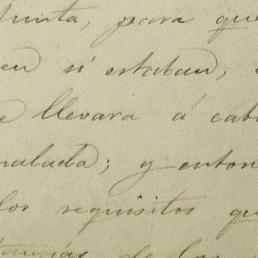 Junta, para que
si estaban,
llevara á cab
nalada; y enton
los requisitos qu
de los